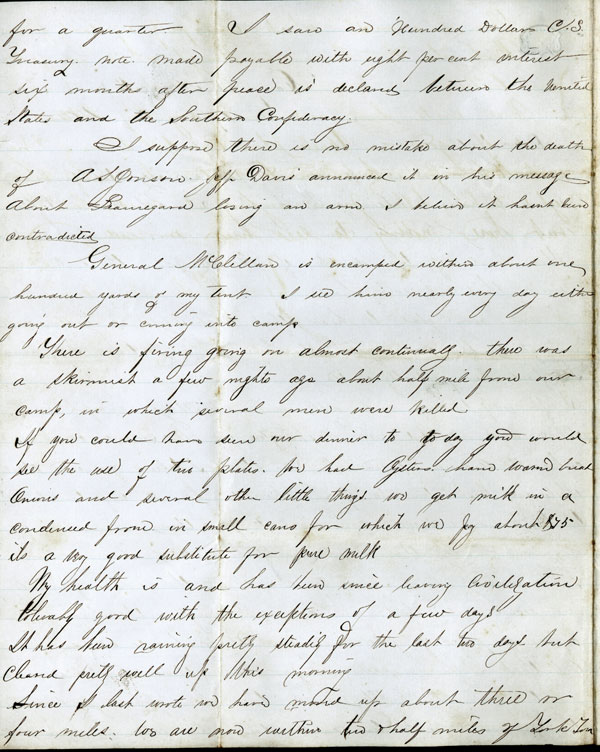 for a quarter I saw an Hundred Dollar C.S.
Treasury note made payable with eight per cent interest
six months after peace is declared between the United
States and the Southern Confederacy.
I suppose there is no mistake about the death
of A S Jonson. Jeff Davis announced it in his message
About Beauregard losing an arm I believe it hasnt been
contradicted
General McClellan is encamped within about one
hundred yards of my tent I see him nearly every day either
going out or coming into camp
There is firing going on almost continually. there was
a skirmish a few nights ago about half mile from our
camp, in which several men were killed
If you could have seen our dinner to to day you would
see the use of tin plates. We had Oysters ham warm bread
Onions and several other little things we get milk in a
condensed from in small cans for which we pay about $.75
its a very good substitute for pure milk
My health is and has been since leaving Civilization
tolerably good with the exceptions of a few days
It has been raining pretty steadily for the last two days but
cleared pretty well up this morning
Since I last wrote we have moved up about three or
four miles. We are now within two & half miles of York Town